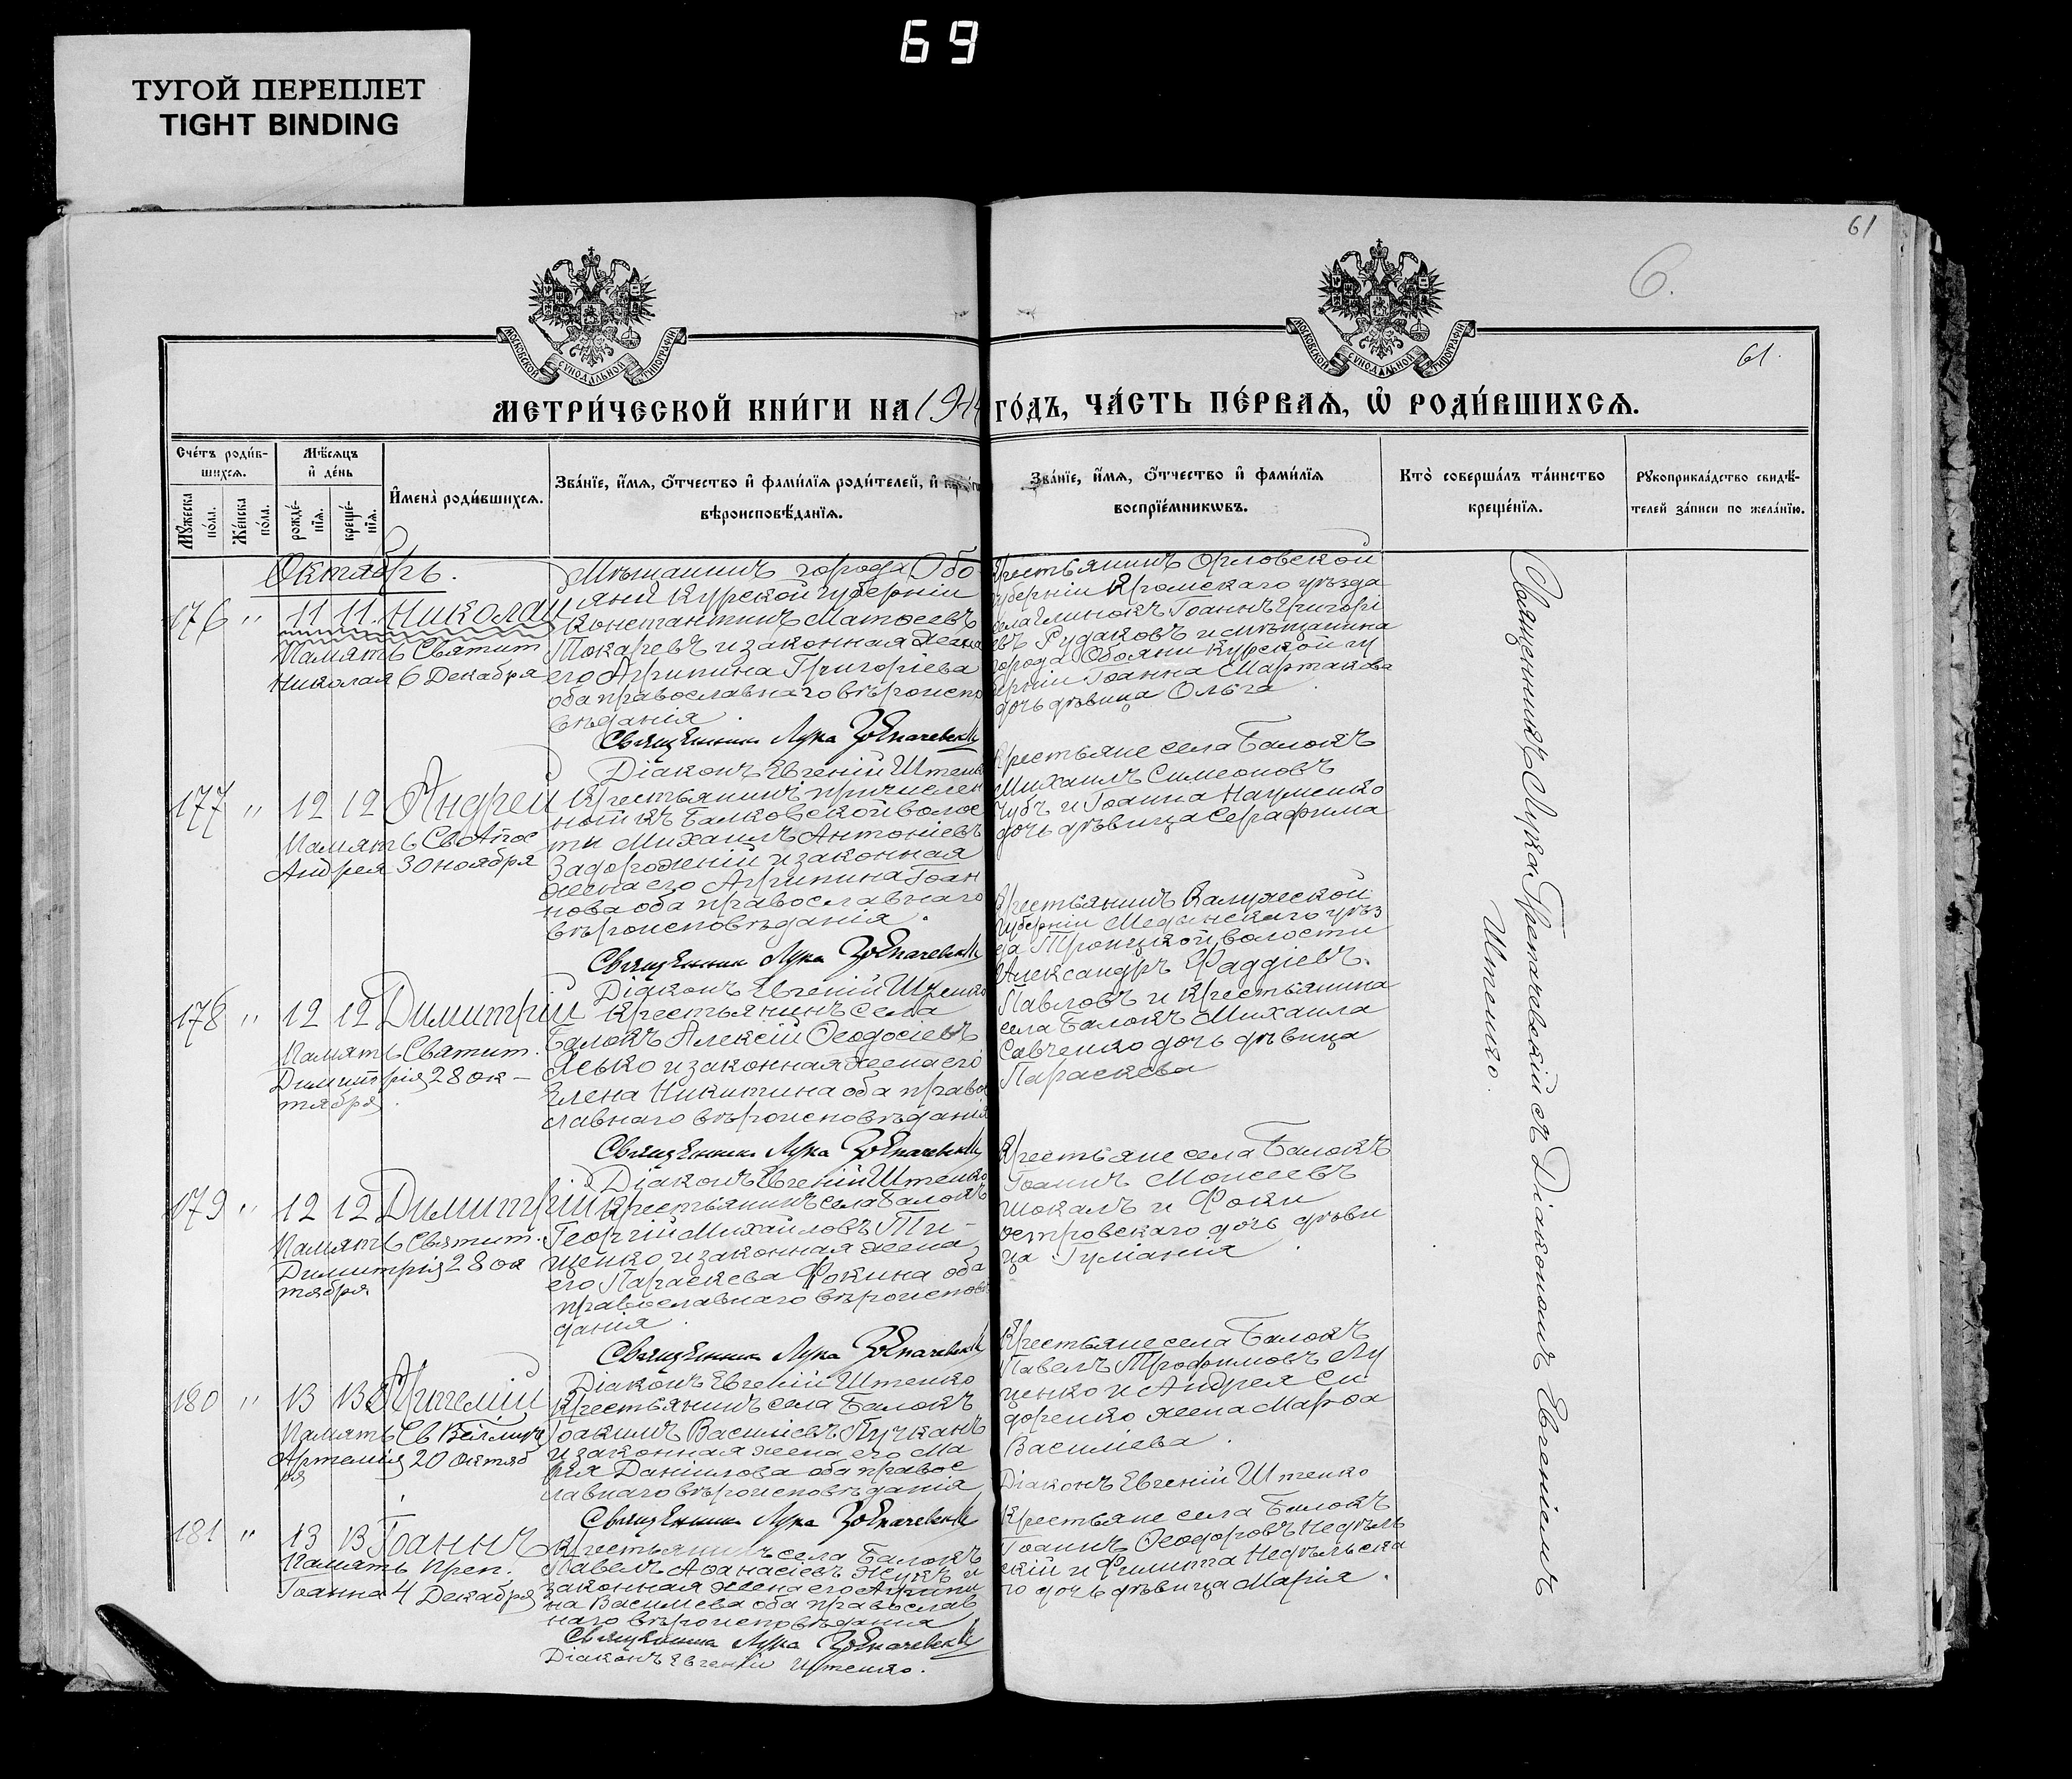 69
ТУГОЙ ПЕРЕПЛЕТ
TIGHT BINDING
61
6.
61.
МОСКОВСКОЙ СѴНОДАЛЬНОЙ ТИПОГРАФІИ
МОСКОВСКОЙ СѴНОДАЛЬНОЙ ТИПОГРАФІИ
МЕТРИ́ЧЕСКОЙ КНИ́ГИ НА 191 ГО́ДЪ, ЧА́СТЬ ПЕ́РВАѦ, Ѡ РОДИ́ВШИХСѦ.
Сче́тъ роди́в-
шихсѧ.
Мꙋ́жеска по́ла.
Же́нска по́ла.
Мѣ́сѧцъ
и҆ де́нь
рожде́-
нїѧ.
креще́-
нїѧ.
И҆мена̀ роди́вшихсѧ.
Зва́нїе, и҆́мѧ, ѻ҆́тчество и҆ фами́лїѧ роди́телей, и҆
вѣроисповѣ́данїѧ.
Зва́нїе, и҆́мѧ, ѻ҆́тчество и҆ фами́лїѧ
воспрїе́мникѡвъ.
Кто̀ соверша́лъ та́инство
креще́нїѧ.
Рꙋкоприкла́дство свидѣ́-
телей за́писи по жела́нїю.
Октябрь.
176 " 11 11. Николай
Память Святит
Николая 6 Декабря
Мѣщанинъ города Обо
яни Курской губерніи
Константинъ Матѳеевъ
Токаревъ и законная жена
его Агрипина Григоріева
оба православнаго вѣроиспо
вѣданія.
Священникъ Лука
Діаконъ Евгеній Штенко
Крестьянинъ Орловской
губерніи Кромскаго уѣзда
села Глинокъ Іоаннъ Григорі
евъ Рудаковъ и мѣщанина
города Обояни Курской гу
берніи Іоанна Мартакова
дочь дѣвица Ольга.
177 " 12 12 Андрей
Память Св Апос
Андрея 30 ноября
Крестьянинъ причислен
ный къ Балковской волос
ти Михаилъ Антоніевъ
Задорожній и законная
жена его Агрипина Іоан
нова оба православнаго
вѣроисповѣданія.
Священникъ Лука
Діаконъ Евгеній Штенко
Крестьяне села Балокъ
Михаилъ Симеоновъ
Чубъ и Іоанна Науменко
дочь дѣвица Серафима
178 " 12 12 Димитрій
Память Святит.
Димитрія 28 ок-
тября.
Крестьянинъ села
Балокъ Алексій Ѳеодосіевъ
Лсько и законная жена его
Елена Никитина оба право
славнаго вѣроисповѣданія
Священникъ Лука
Діаконъ Евгеній Штенко
Крестьянинъ Калужской
губерніи Медынскаго уѣз
да Троицкой волости
Александръ Фаддіевъ
Павловъ и Крестьянина
села Балокъ Михаила
Савченко дочь дѣвица
Параскева
179 " 12 12 Димитрій
Память Святит.
Димитрія 28 ок
тября
Крестьянинъ села Балокъ
Георгій Михайловъ Ти-
щенко и законная жена
его Параскева Фокина оба
православнаго вѣроисповѣ
данія.
Священникъ Лука
Діаконъ Евгеній Штенко
Крестьяне села Балокъ
Іоаннъ Моисеевъ
Шокалъ и Фоки
Островскаго дочь дѣви
ца Іуліанія.
180 " 13 13 Артемій
Память Св Велмуч
Артемія 20 Октяб
ря
Крестьянинъ села Балокъ
Іоакимъ Василіевъ Пучканъ
и законная жена его Ма
рія Даніилова оба правос
лавнаго вѣроисповѣданія
Священникъ Лука
Крестьяне села Балокъ
Павелъ Трофимовъ Лу
ценко и Андрея Си
доренко жена Марѳа
Василіева.
Діаконъ Евгеній Штенко
181 " 13 13 Іоаннъ
Память Преп.
Іоанна 4 Декабря
Крестьянинъ села Балокъ
Павелъ Аѳанасіевъ Жукъ и
законная жена его Агрипи
на Василіева оба православ
наго вѣроисповѣданія
Священникъ Лука
Діаконъ Евгеній Штенко.
Крестьяне села Балокъ
Іоаннъ Ѳеодоровъ Недѣль
скій и Филиппа Недѣльска
го дочь дѣвица Марія.
Священникъ Лука съ Діакономъ Евгеніемъ
Штенко.